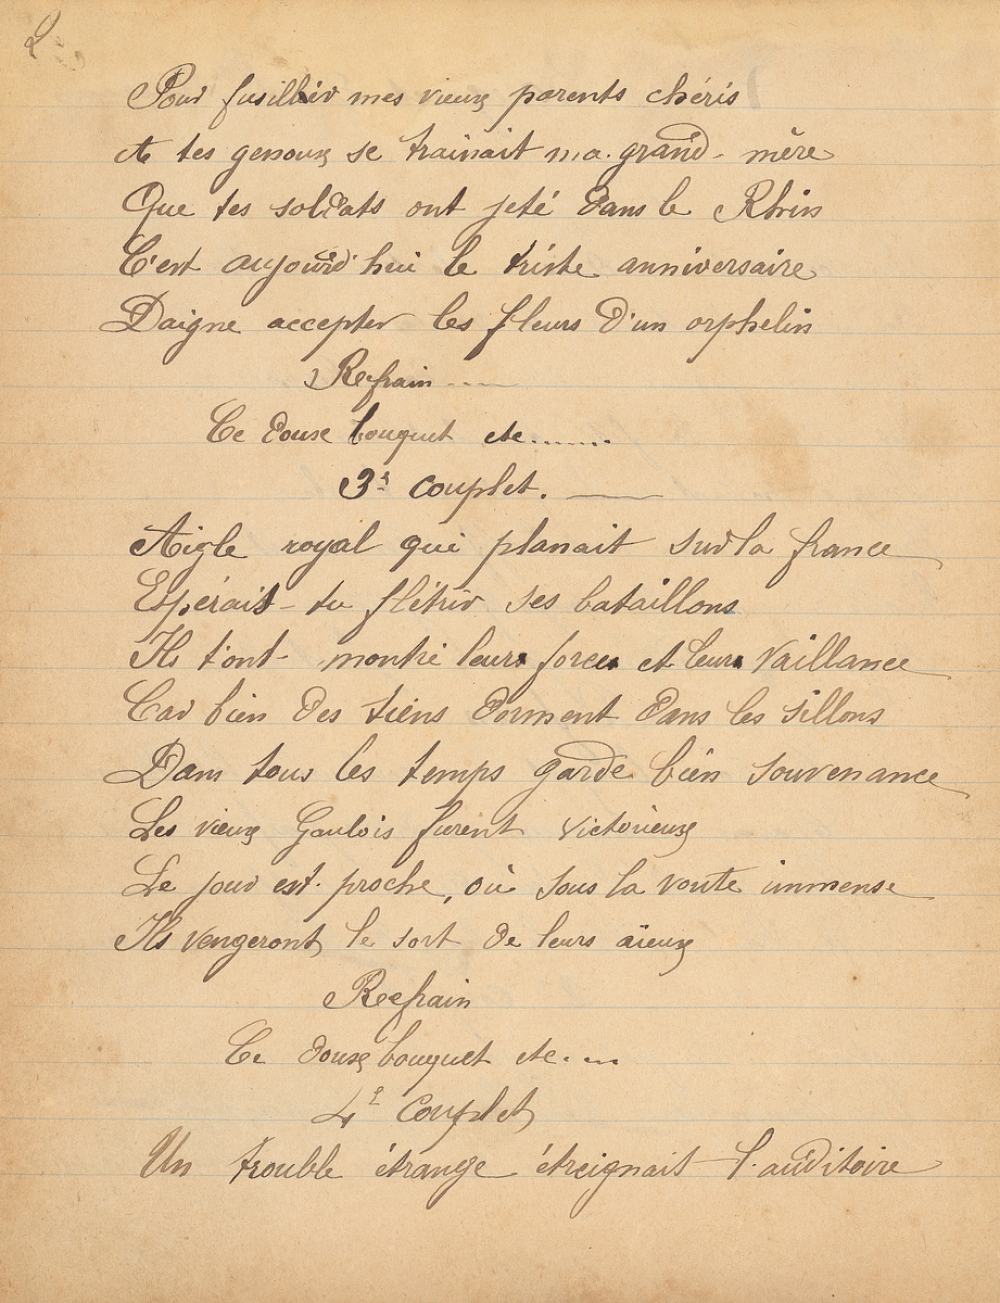 2
Pour fusillier mes vieux parents chéris
A tes genoux se trainait ma grand-mère
Que tes soldats ont jeté dans le Rhin
C'est aujourd'hui le triste anniversaire
Daigne accepter les fleurs d'un orphelin
Refrain ----
Ce doux bouquet etc.......
3e couplet. ——
Aigle royal qui planait sur la france
Espérais-tu flétrir ses bataillons
Ils t'ont montré leurs forces et leurs vaillance
Car bien des tiens dorment dans les sillons
Dans tous les temps garde bien souvenance
Les vieux Gaulois furent victorieux
Le jour est proche, où sous la voute immense
Ils vengeront le sort de leurs aïeux
Refrain
Ce doux bouquet etc....
4e Couplet
Un trouble étrange étreignait l'auditoire